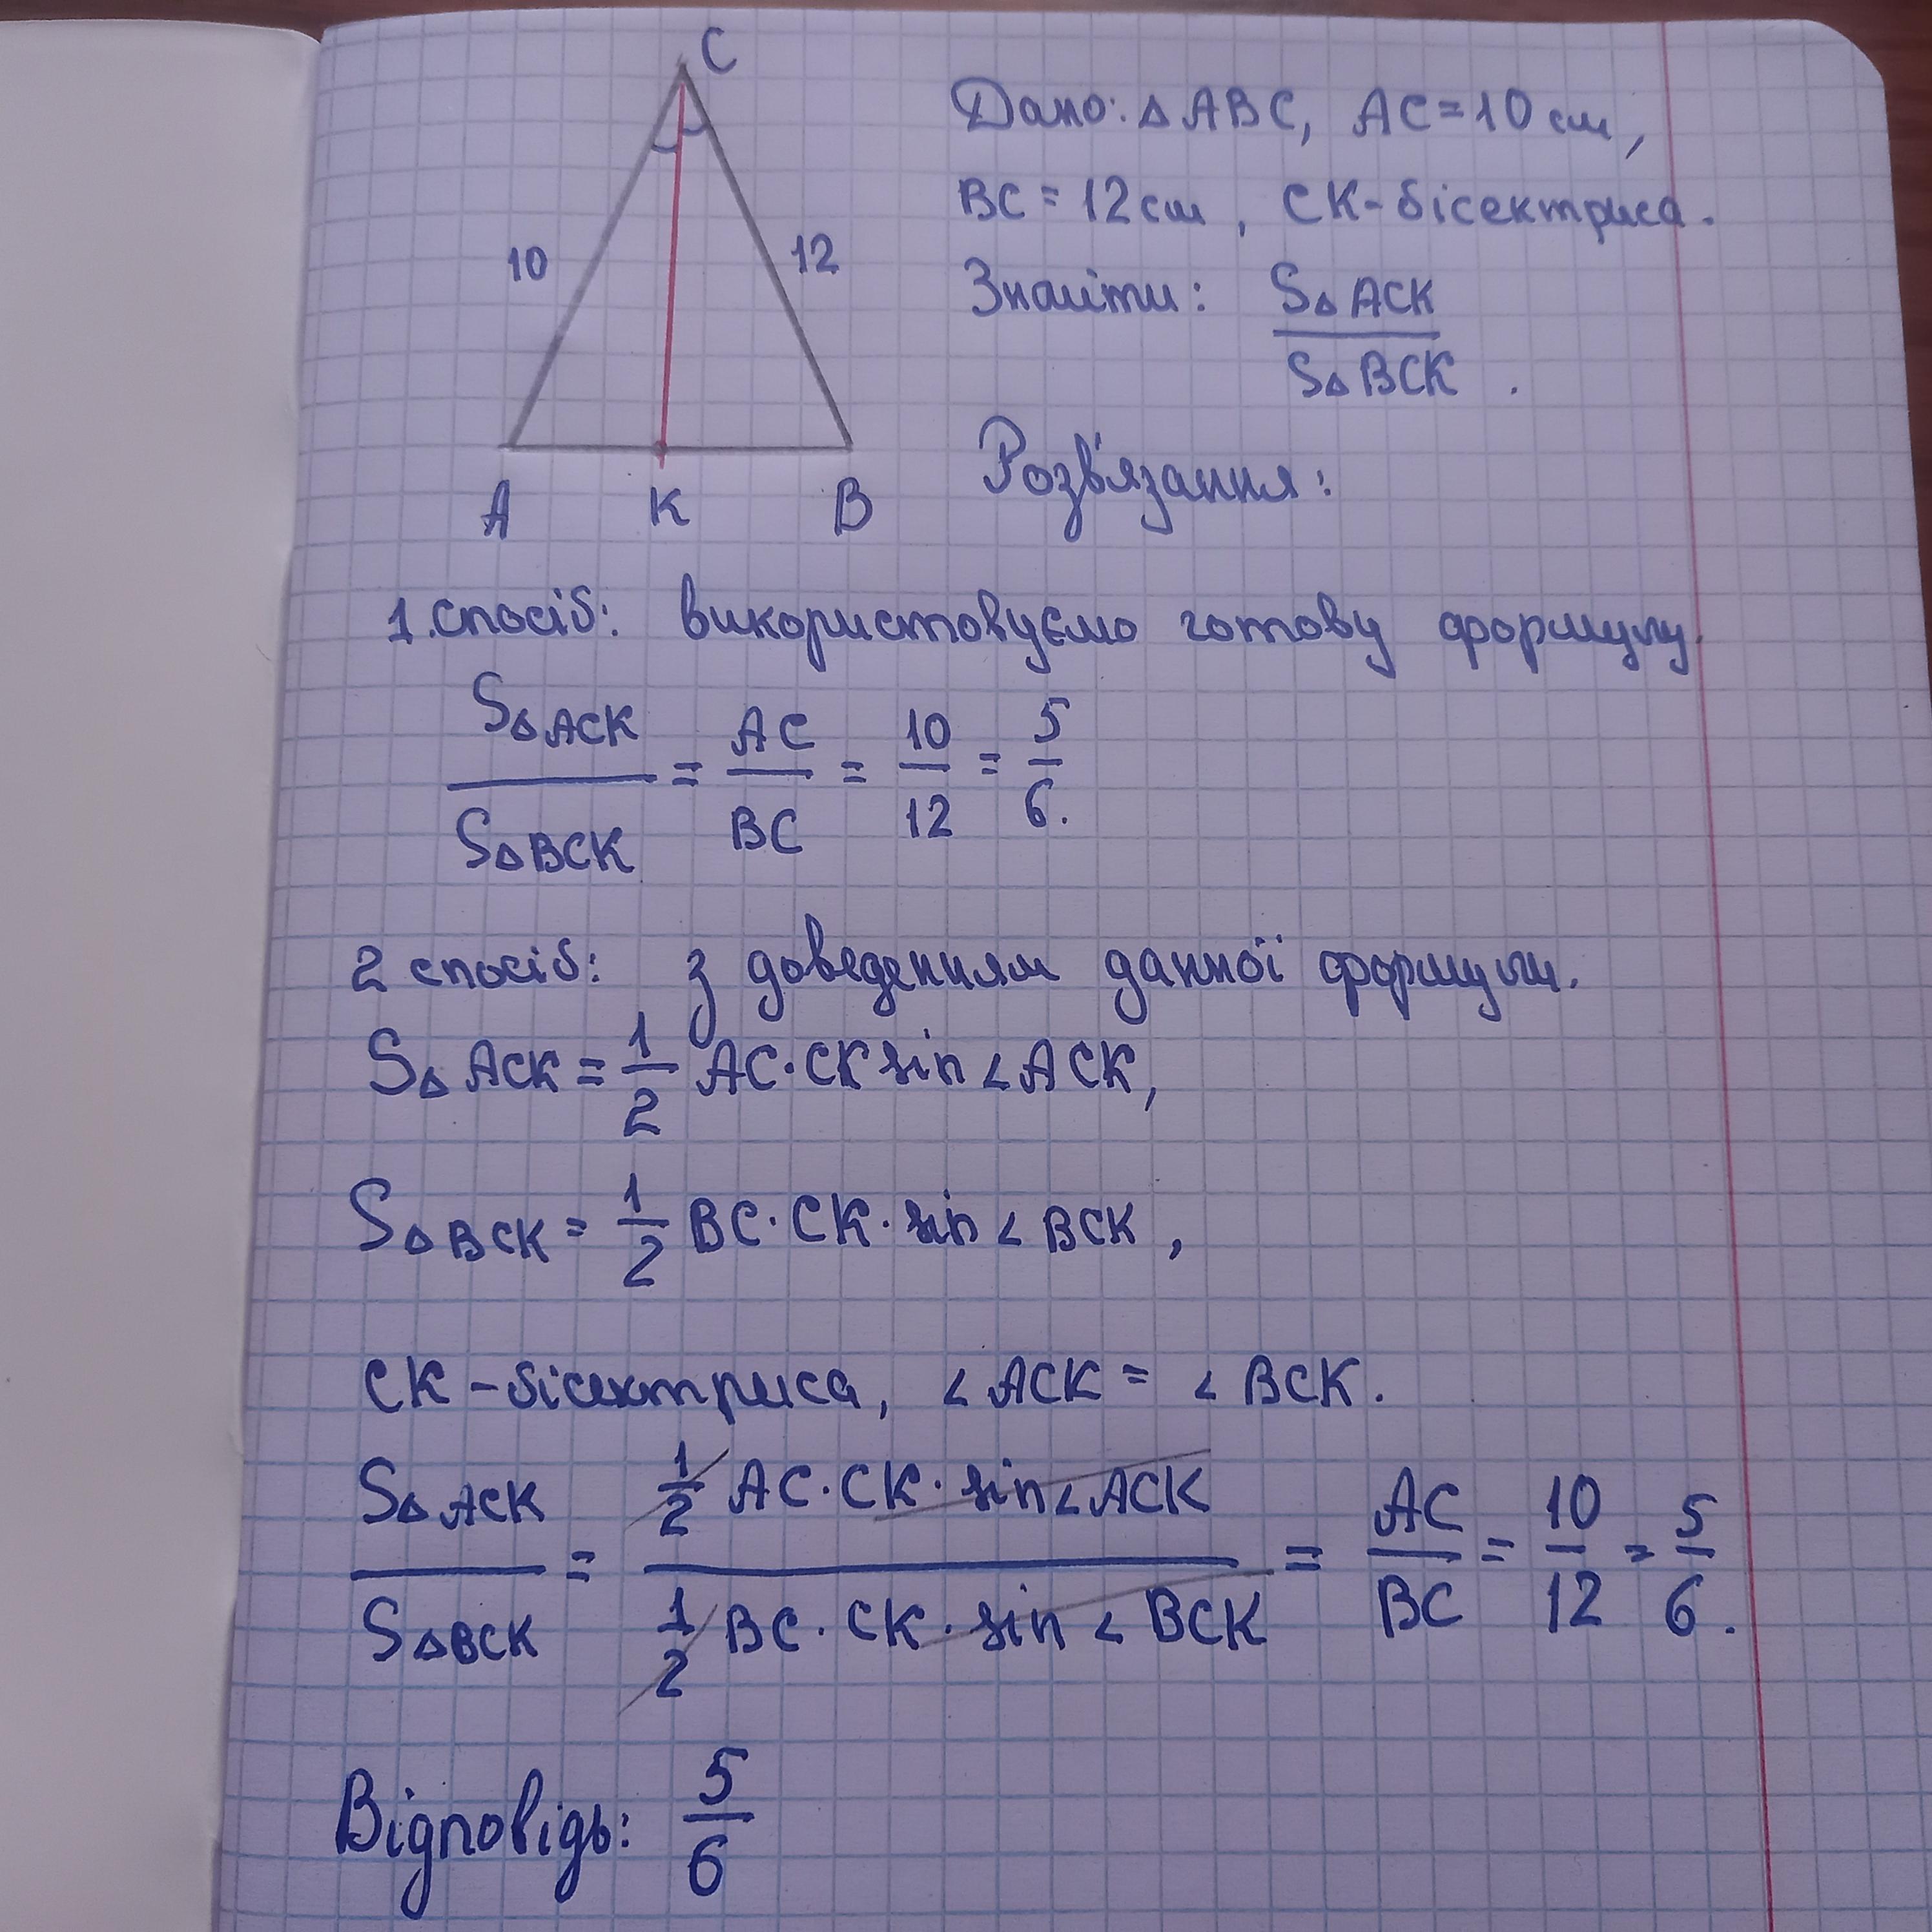 C
10
12
A K B
Дано: △ ABC, AC = 10 см,
BC = 12 см, CK - бісектриса.
Знайти: S△ ACK / S△ BCK.
Розв'язання:
1. спосіб: використовуємо готову формулу.
S△ ACK / S△ BCK = AC / BC = 10 / 12 = 5 / 6.
2 спосіб: з доведенням данної формули.
S△ ACK = 1/2 AC · CK sin ∠ ACK,
S△ BCK = 1/2 BC · CK · sin ∠ BCK,
CK - бісектриса, ∠ ACK = ∠ BCK.
S△ ACK / S△ BCK = 1/2 AC · CK · sin ∠ ACK / 1/2 BC · CK · sin ∠ BCK = AC / BC = 10 / 12 = 5 / 6.
Відповідь: 5/6